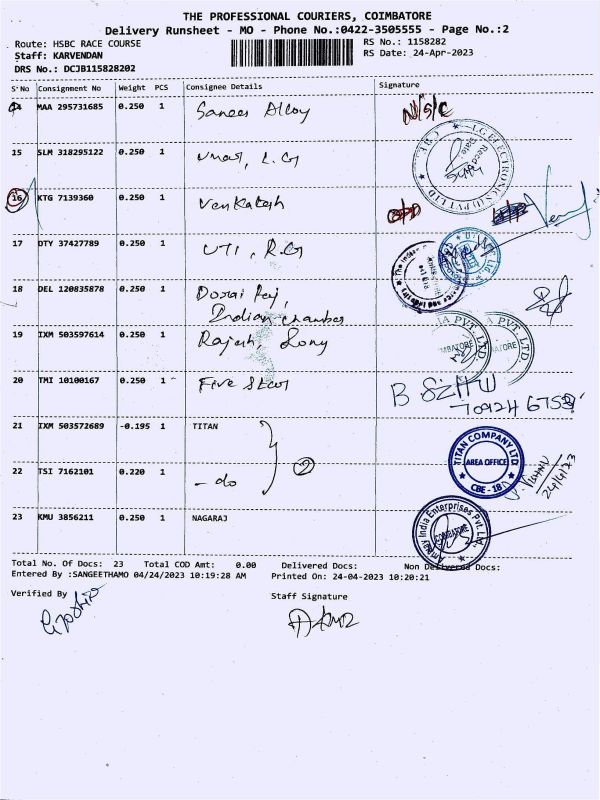 THE PROFESSIONAL COURIERS, COIMBATORE
Delivery Runsheet - MO - Phone No.:0422-3505555 - Page No.:2
Route: HSBC RACE COURSE
RS No.: 1158282
Staff: KARVENDAN
RS Date: 24-Apr-2023
DRS No.: DCJB115828202
S'No Consignment No Weight PCS Consignee Details Signature
MAA 295731685 0.250 1 Sanees Alloy N/S/C
15 SLM 318295122 0.250 1 Umar, L.G
I.G. ELECTRONICS (I) PVT LTD. CBE
16 KTG 7139360 0.250 1 Venkatesh
17 DTY 37427789 0.250 1 UTI, R.G
18 DEL 120835878 0.250 1 Dorai Raj,
Indian chamber
19 IXM 503597614 0.250 1 Rajesh, Sony
PVT. LTD.
PVT. LTD.
20 TMI 10100167 0.250 1 Five Star
21 IXM 503572689 -0.195 1 TITAN
TITAN COMPANY LTD
AREA OFFICE
CBE - 18
2
24/4/23
22 TSI 7162101 0.220 1 - do
23 KMU 3856211 0.250 1 NAGARAJ
Amway India Enterprises Pvt. Ltd.
COIMBATORE
Total No. Of Docs: 23 Total COD Amt: 0.00 Delivered Docs: Non Delivered Docs:
Entered By :SANGEETHAMO 04/24/2023 10:19:28 AM Printed On: 24-04-2023 10:20:21
Verified By Staff Signature